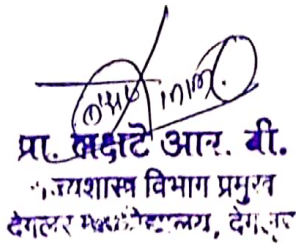 प्रा. नक्षटे आर. बी.
राज्यशास्त्र विभाग प्रमुख
देगलूर महाविद्यालय, देगलूर